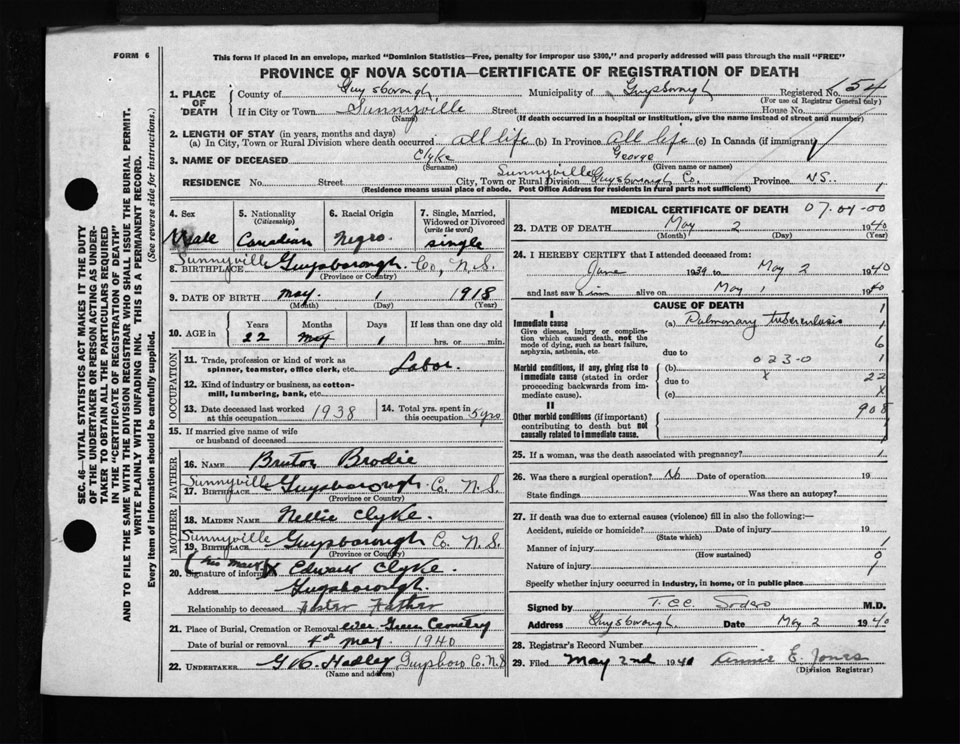 FORM 6
This form if placed in an envelope, marked "Dominion Statistics—Free, penalty for improper use $300," and properly addressed will pass through the mail "FREE"
PROVINCE OF NOVA SCOTIA—CERTIFICATE OF REGISTRATION OF DEATH
1. PLACE OF DEATH
County of Guysborough Municipality of Guysborough Registered No. 654
(For use of Registrar General only)
If in City or Town Sunnyville Street House No.
(Name) (If death occurred in a hospital or institution, give the name instead of street and number)
2. LENGTH OF STAY (in years, months and days)
(a) In City, Town or Rural Division where death occurred all life (b) In Province All life (c) In Canada (if immigrant)
3. NAME OF DECEASED Clyke George
(Surname) (Given name or names)
RESIDENCE No. Street City, Town or Rural Division Sunnyville Guysborough Co. Province N.S.. 1
(Residence means usual place of abode. Post Office Address for residents in rural parts not sufficient)
SEC. 46—VITAL STATISTICS ACT MAKES IT THE DUTY
OF THE UNDERTAKER OR PERSON ACTING AS UNDER-
TAKER TO OBTAIN ALL THE PARTICULARS REQUIRED
IN THE "CERTIFICATE OF REGISTRATION OF DEATH"
AND TO FILE THE SAME WITH THE DIVISION REGISTRAR WHO SHALL ISSUE THE BURIAL PERMIT.
WRITE PLAINLY WITH UNFADING INK. THIS IS A PERMANENT RECORD.
Every item of information should be carefully supplied. (See reverse side for instructions.)
4. Sex
Male
5. Nationality
(Citizenship)
Canadian
6. Racial Origin
Negro.
7. Single, Married,
Widowed or Divorced
(write the word)
single
8. BIRTHPLACE Sunnyville Guysborough Co, N.S.
(Province or Country)
9. DATE OF BIRTH May. 1 1918
(Month) (Day) (Year)
10. AGE in
Years Months Days If less than one day old
22 May 1 hrs. or min.
OCCUPATION
11. Trade, profession or kind of work as
spinner, teamster, office clerk, etc. Labor.
12. Kind of industry or business, as cotton-
mill, lumbering, bank, etc.
13. Date deceased last worked
at this occupation 1938
14. Total yrs. spent in
this occupation 5 yrs
15. If married give name of wife
or husband of deceased
FATHER
16. NAME Bruton Brodie
17. BIRTHPLACE Sunnyville Guysborough Co. N.S.
(Province or Country)
MOTHER
18. MAIDEN NAME Nellie Clyke.
19. BIRTHPLACE Sunnyville Guysborough Co N.S.
(Province or Country)
20. Signature of informant (his mark) X Edward Clyke.
Address Guysborough.
Relationship to deceased Foster Father
21. Place of Burial, Cremation or Removal ever-Green Cemetery
Date of burial or removal 4th May. 1940
22. UNDERTAKER Hadley Guysboro Co. N.S
(Name and address)
MEDICAL CERTIFICATE OF DEATH 07-04-00
23. DATE OF DEATH May 2 1940
(Month) (Day) (Year)
24. I HEREBY CERTIFY that I attended deceased from:
June 1939 to May 2 1940
and last saw him alive on May 1 1940
CAUSE OF DEATH
I
Immediate cause
Give disease, injury or complica-
tion which caused death, not the
mode of dying, such as heart failure,
asphyxia, asthenia, etc.
(a) Pulmonary tuberculosis
due to
Morbid conditions, if any, giving rise to
immediate cause (stated in order
proceeding backwards from im-
mediate cause).
(b) 023-0
due to x
(c)
1
6
1
22
X
908
II
Other morbid conditions (if important)
contributing to death but not
causally related to immediate cause.
25. If a woman, was the death associated with pregnancy?
26. Was there a surgical operation? No Date of operation 19
State findings Was there an autopsy?
27. If death was due to external causes (violence) fill in also the following:—
Accident, suicide or homicide? Date of injury 19
(State which)
Manner of injury 1
(How sustained)
Nature of injury
Specify whether injury occurred in industry, in home, or in public place
Signed by Sodero M.D.
Address Guysborough. Date May 2 1940
28. Registrar's Record Number
29. Filed May 2nd 1940 Annie E. Jones
(Division Registrar)